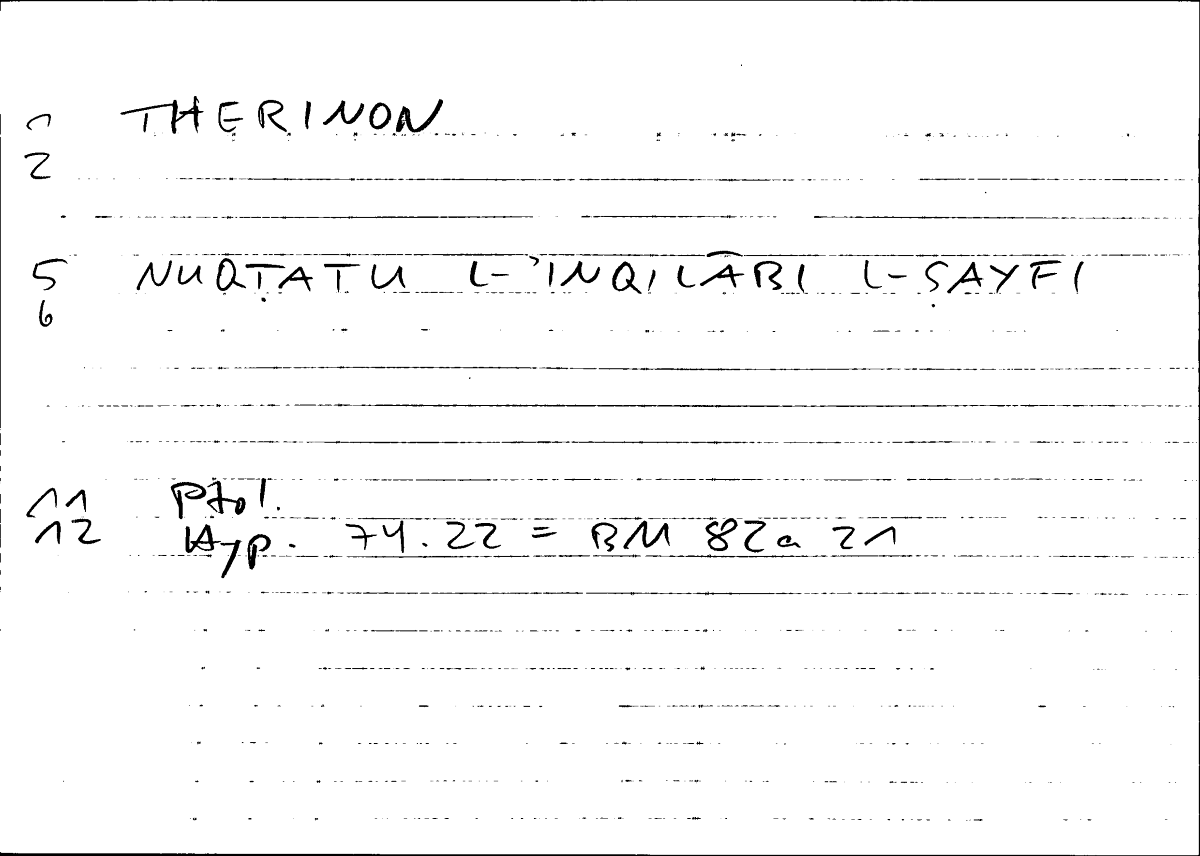 1 THERINON
2
5 NUQṬATU L-ʾINQILĀBI L-ṢAYFI
6
11 Ptol.
12 Hyp. 74.22 = BM 82a 21